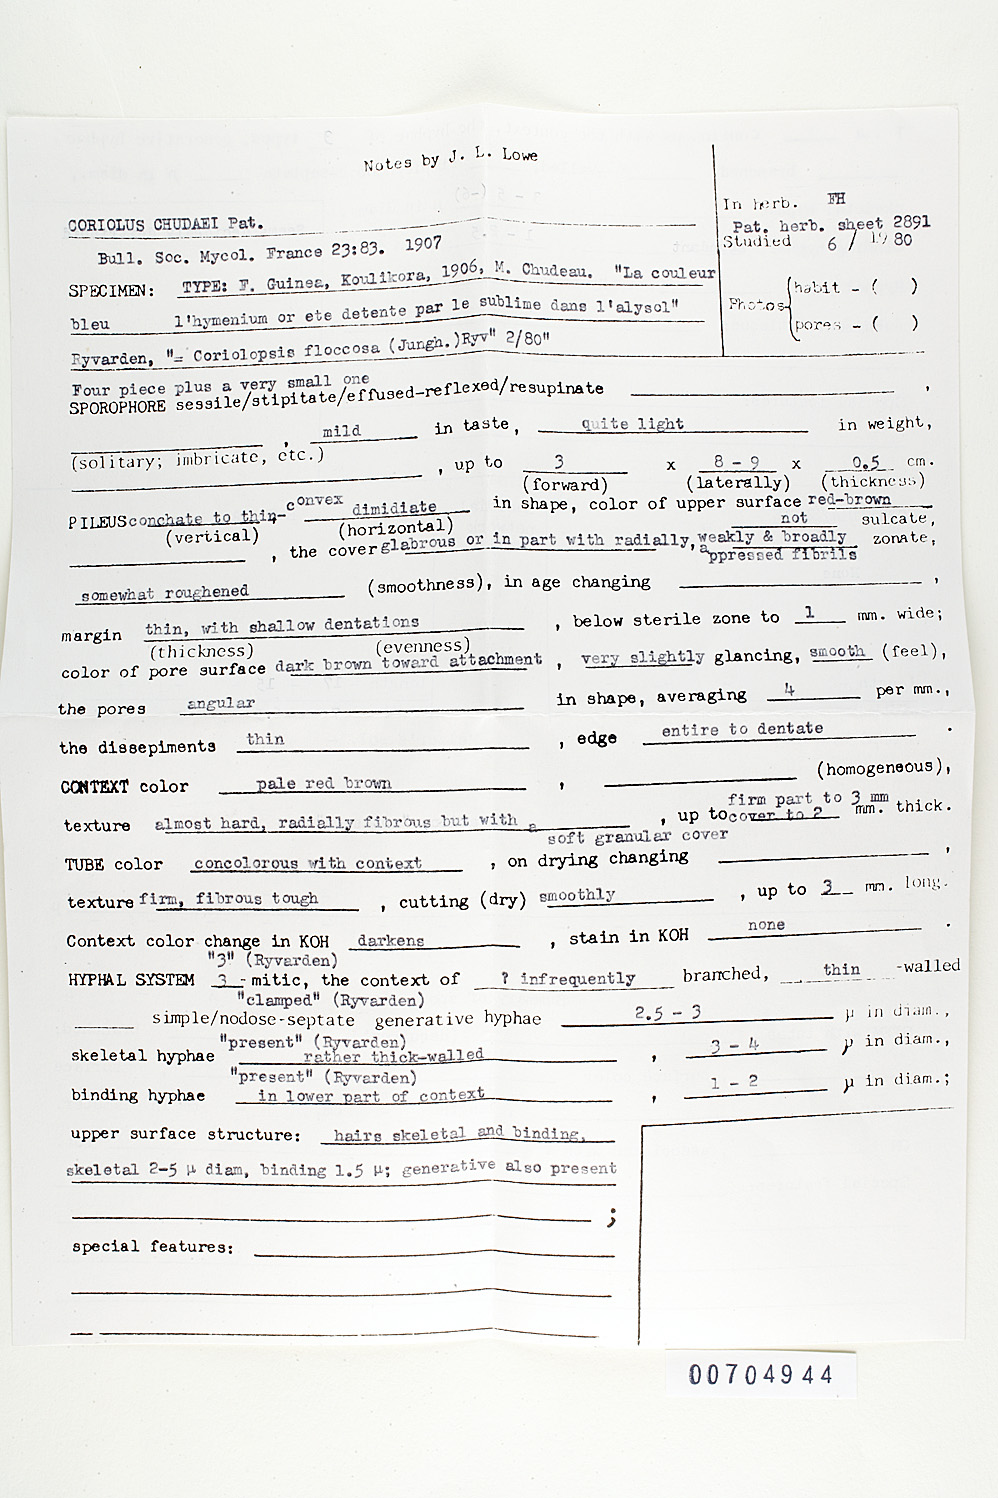 Notes by J. L. Lowe
In herb. FH
CORIOLUS CHUDAEI Pat.
Pat. herb. sheet 2891
Studied 6 / 1980
Bull. Soc. Mycol. France 23:83. 1907
SPECIMEN: TYPE: F. Guinea, Koulikora, 1906, M. Chudeau. "La couleur
Photos habit - ( )
bleu l'hymenium or ete detente par le sublime dans l'alysol"
pores - ( )
Ryvarden, "= Coriolopsis floccosa (Jungh.)Ryv" 2/80"
Four piece plus a very small one
SPOROPHORE sessile/stipitate/effused-reflexed/resupinate ,
, mild in taste, quite light in weight,
(solitary; imbricate, etc.)
, up to 3 x 8 - 9 x 0.5 cm.
(forward) (laterally) (thickness)
PILEUS conchate to thin-convex dimidiate in shape, color of upper surface red-brown
(vertical) (horizontal) not sulcate,
, the cover glabrous or in part with radially, weakly & broadly zonate,
appressed fibrils
somewhat roughened (smoothness), in age changing ,
margin thin, with shallow dentations , below sterile zone to 1 mm. wide;
(thickness) (evenness)
color of pore surface dark brown toward attachment , very slightly glancing, smooth (feel),
the pores angular in shape, averaging 4 per mm.,
the dissepiments thin , edge entire to dentate .
CONTEXT color pale red brown , (homogeneous),
firm part to 3 mm
texture almost hard, radially fibrous but with a , up to cover to 2 mm. thick.
soft granular cover
TUBE color concolorous with context , on drying changing ,
texture firm, fibrous tough , cutting (dry) smoothly , up to 3 mm. long.
Context color change in KOH darkens , stain in KOH none .
"3" (Ryvarden)
HYPHAL SYSTEM 3 -mitic, the context of ? infrequently branched, thin -walled
"clamped" (Ryvarden)
simple/nodose-septate generative hyphae 2.5 - 3 µ in diam.,
"present" (Ryvarden)
skeletal hyphae rather thick-walled , 3 - 4 µ in diam.,
"present" (Ryvarden)
binding hyphae in lower part of context , 1 - 2 µ in diam.;
upper surface structure: hairs skeletal and binding,
skeletal 2-5 µ diam, binding 1.5 µ; generative also present
;
special features:
00704944